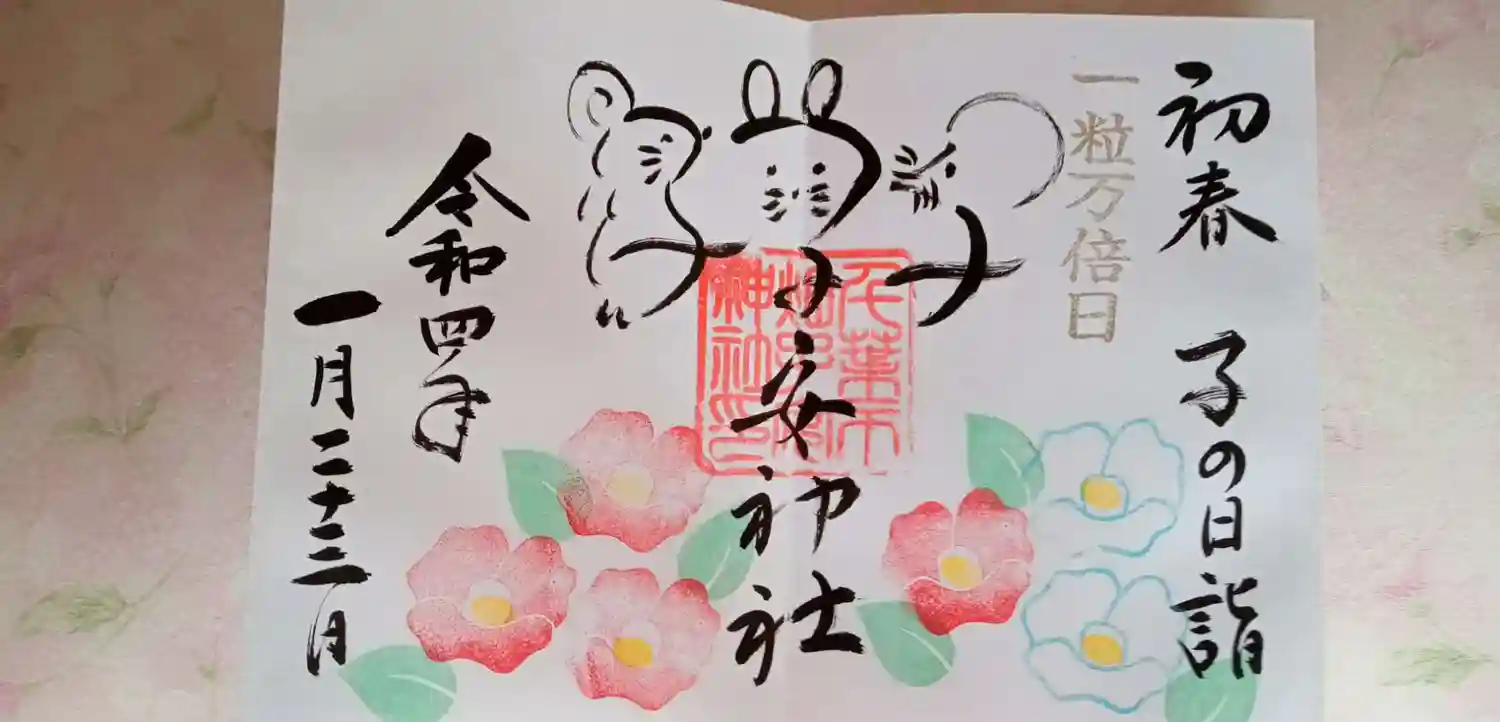 初春 子の日詣
一粒万倍日
子安神社
千葉市
神社印
令和四年
一月二十三日